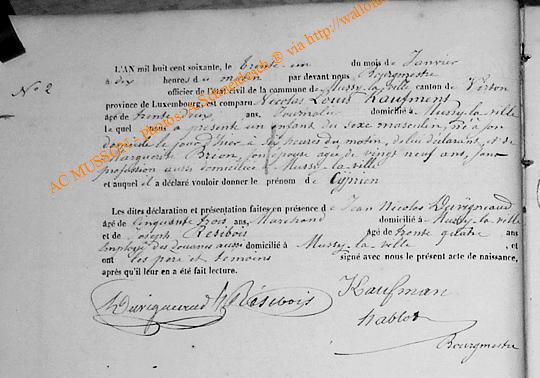 L'AN mil huit cent soixante, le trente-un du mois de Janvier
à dix heures du matin par devant nous Bourgmestre
N° 2
officier de l'état civil de la commune de Mussy-la-ville canton de Virton
province de Luxembourg, est comparu Nicolas Louis Kaufment
âgé de trente deux ans, Journalier domicilié à Mussy-la-ville
le quel nous a présenté un enfant du sexe masculin, né à son
domicile le jour d'hier à six heures du matin, de lui déclarant, et de
Marguerite Brion, son épouse agée de vingt neuf ans, sans
profession aussi domiciliée à Mussy-la-ville
et auquel il a déclaré vouloir donner le prénom de Cyprien
Les dites déclaration et présentation faites en présence de Jean Nicolas Duvigneaud
âgé de cinquante trois ans, Marchand domicilié à Mussy-la-ville
et de Joseph Résibois âgé de trente quatre ans,
Employé des douanes aussi domicilié à Mussy-la-ville, et
ont les père et témoins signé avec nous le présent acte de naissance,
après qu'il leur en a été fait lecture.
Duvigneaud Résibois Kaufman
Bourgmestre
AC MUSSON - Photos: AC Scherdenbach © via http://wallo